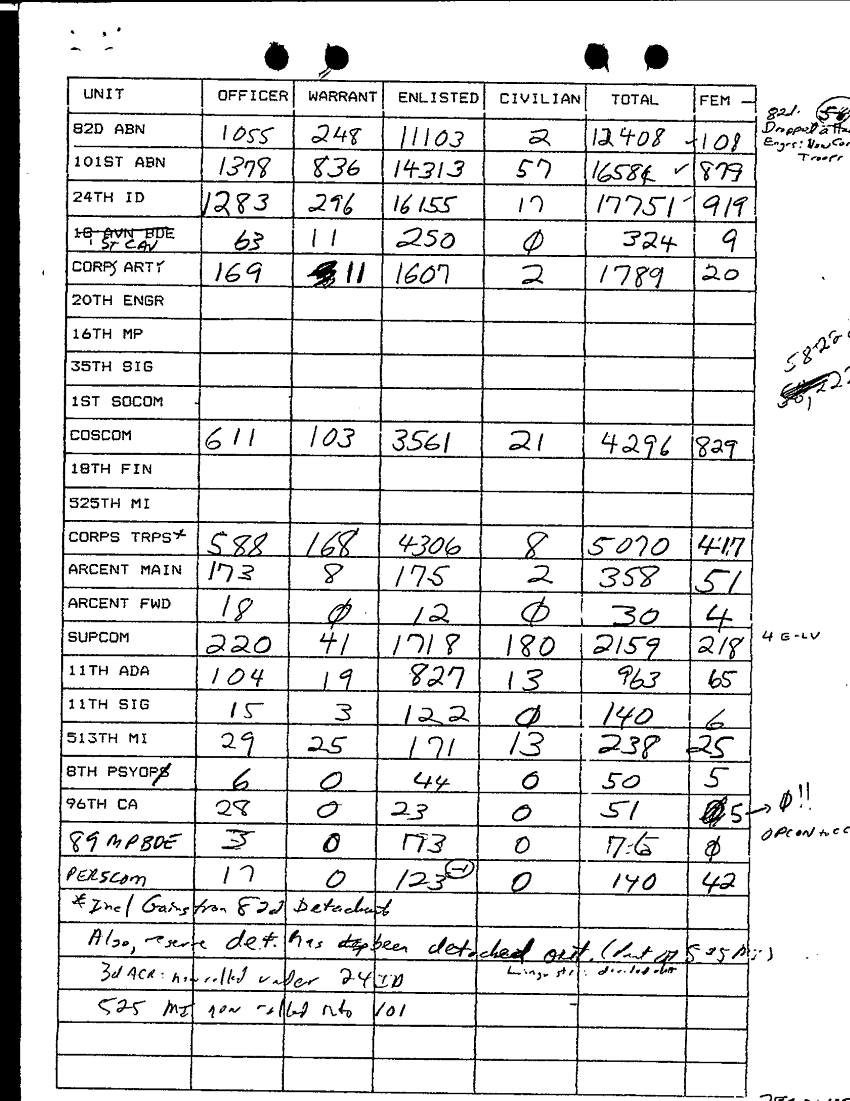 UNIT OFFICER WARRANT ENLISTED CIVILIAN TOTAL FEM -
82D ABN 1055 248 11103 2 12408 108
101ST ABN 1378 836 14313 57 16584 879
24TH ID 1283 296 16155 17 17751 919
18 AVN BDE
1ST CAV 63 11 250 0 324 9
CORPS ARTY 169 11 1607 2 1789 20
20TH ENGR
16TH MP
35TH SIG
1ST SOCOM
COSCOM 611 103 3561 21 4296 829
18TH FIN
525TH MI
CORPS TRPS* 588 168 4306 8 5070 417
ARCENT MAIN 173 8 175 2 358 51
ARCENT FWD 18 0 12 0 30 4
SUPCOM 220 41 1718 180 2159 218 4 E-LV
11TH ADA 104 19 827 13 963 65
11TH SIG 15 3 122 0 140 6
513TH MI 29 25 171 13 238 25
8TH PSYOPS 6 0 44 0 50 5
96TH CA 28 0 23 0 51 5 → 0!!
OPCON to CC
89 MP BDE 3 0 73 0 76 0
PERSCOM 17 0 123 0 140 42
* Incl Gains from 82d Detachmt
Also, reserve det. has been detached out.
3d ACR: now rolled under 24 ID
525 MI now rolled into 101
82d.
Dropped
Engrs: Now Cor
Troops